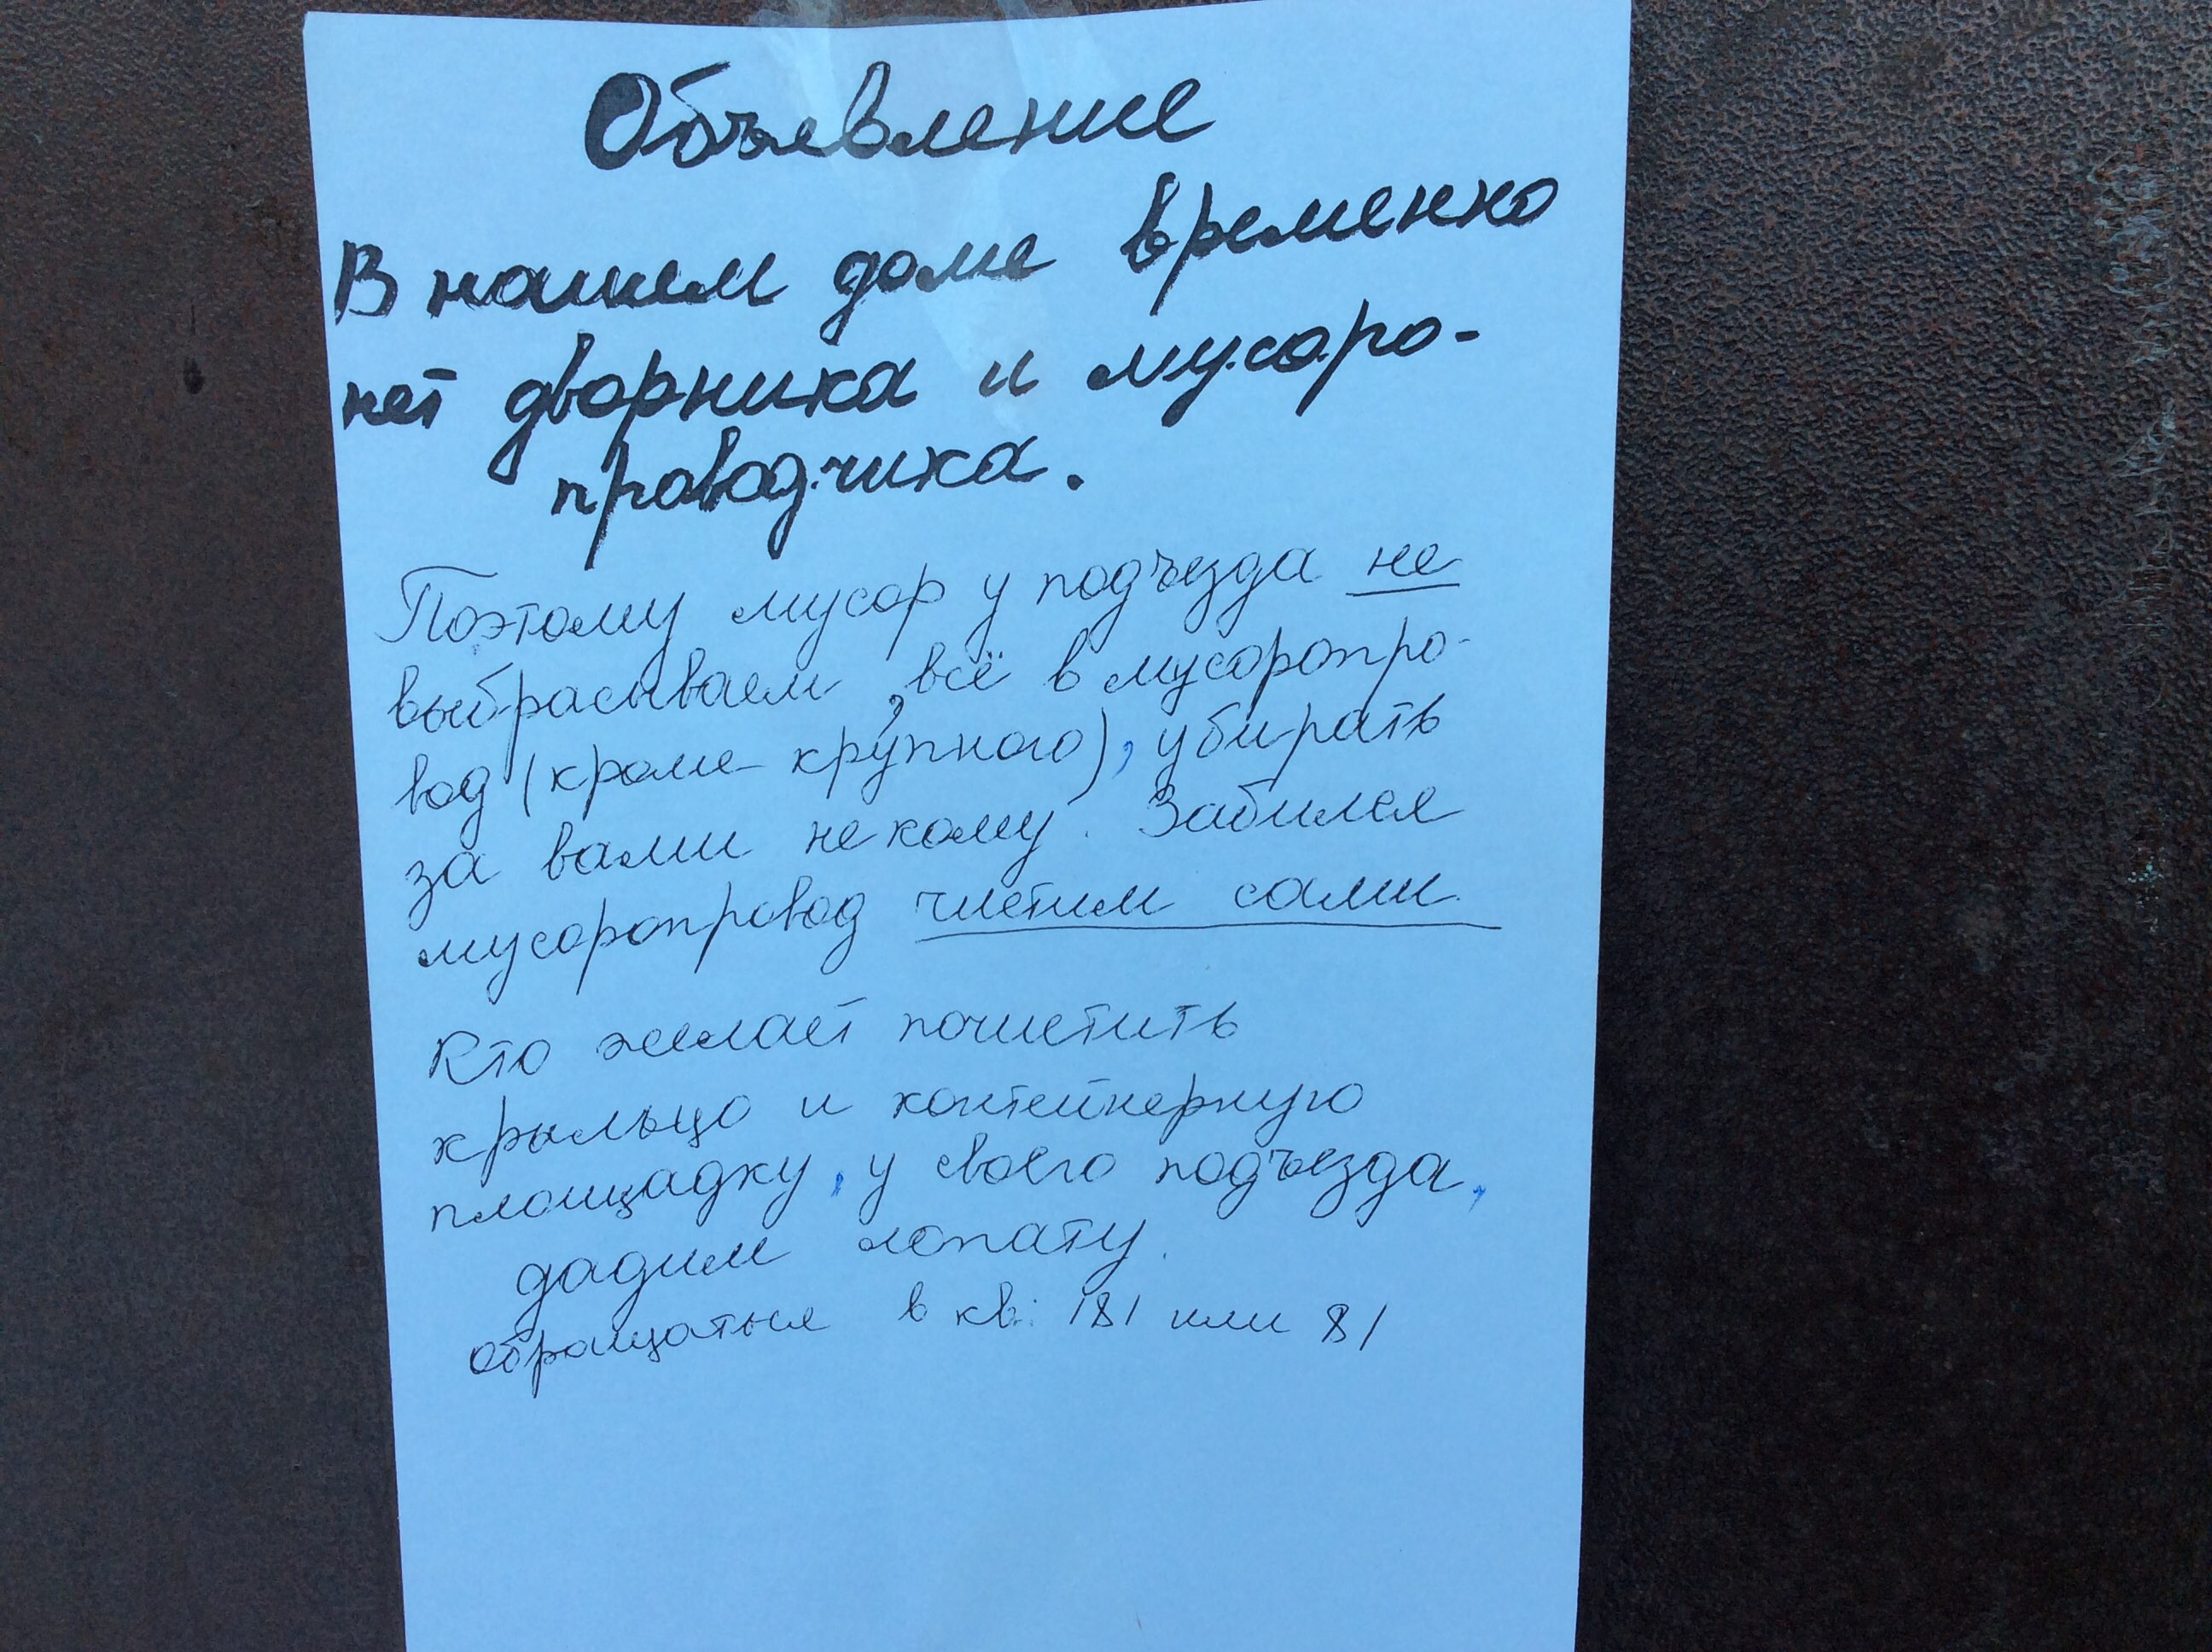 Объевление
В нашем доме временно
нет дворника и мусоро-
проводчика.
Поэтому мусор у подъезда не
выбрасываем, всё в мусоропро-
вод (кроме крупного), убирать
за вами не кому. Забился
мусоропровод чистим сами.
Кто желает почистить
крыльцо и контейнерную
площадку, у своего подъезда,
дадим лопату.
обращаться в кв: 181 или 81